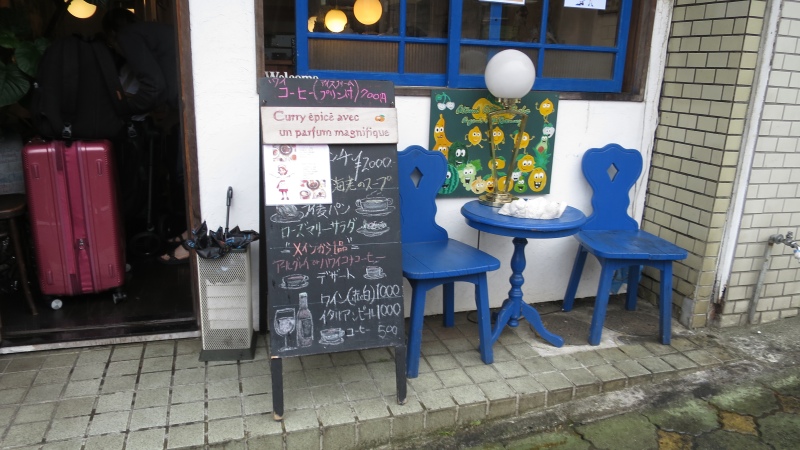 Welcome
ハワイ
コーヒー(アイスクリーム プリン付)700円
Curry épicé avec
un parfum magnifique
ンチ ¥2000
海老のスープ
麦パン
ローズマリーサラダ
"メインから1品"
アールグレイ or ハワイコナコーヒー
デザート
ワイン(赤・白)1000
イタリアンビール1000
コーヒー 500